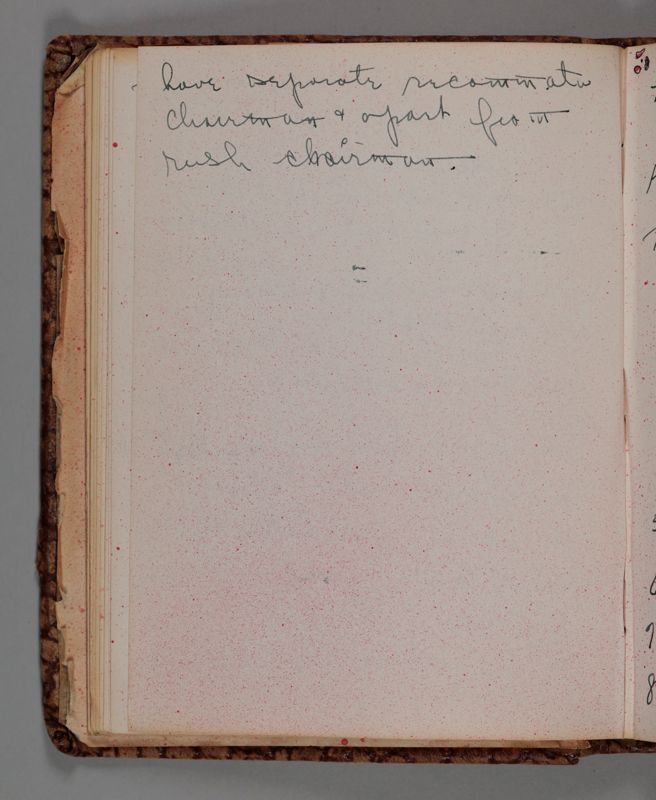 have separate recommatn
chairman & apart from
rush chairman.